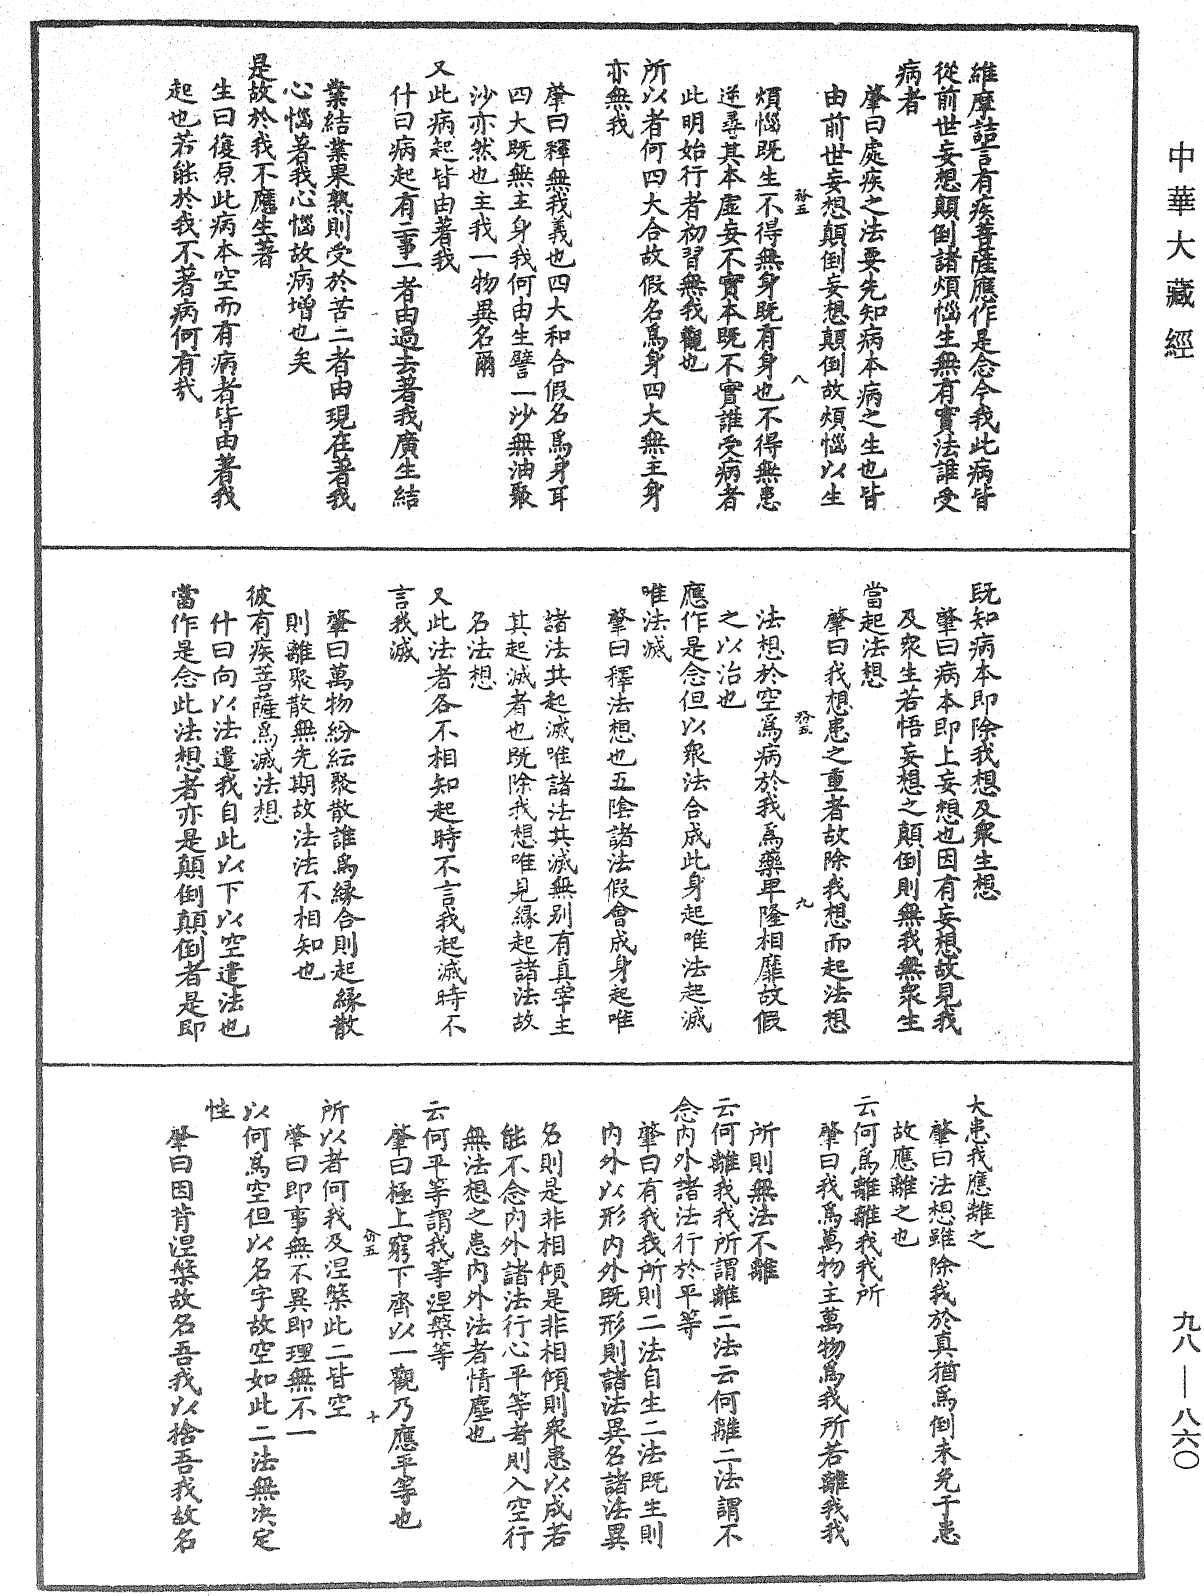 中華大藏經
維摩詰言有疾菩薩應作是念今我此病皆
從前世妄想顛倒諸煩惱生無有實法誰受
病者
肇曰處疾之法要先知病本病之生也皆
由前世妄想顛倒妄想顛倒故煩惱以生
弅五
八
煩惱既生不得無身既有身也不得無患
逆尋其本虛妄不實本既不實誰受病者
此明始行者初習無我觀也
所以者何四大合故假名爲身四大無主身
亦無我
肇曰釋無我義也四大和合假名爲身耳
四大既無主身我何由生譬一沙無油聚
沙亦然也主我一物異名爾
又此病起皆由著我
什曰病起有二事一者由過去著我廣生結
業結業果熟則受於苦二者由現在著我
心惱著我心惱故病增也矣
是故於我不應生著
生曰復原此病本空而有病者皆由著我
起也若能於我不著病何有哉
既知病本即除我想及衆生想
肇曰病本即上妄想也因有妄想故見我
及衆生若悟妄想之顛倒則無我無衆生
當起法想
肇曰我想患之重者故除我想而起法想
弅五
九
法想於空爲病於我爲藥卑隆相靡故假
之以治也
應作是念但以衆法合成此身起唯法起滅
唯法滅
肇曰釋法想也五陰諸法假會成身起唯
諸法共起滅唯諸法共滅無別有真宰主
其起滅者也既除我想唯見緣起諸法故
名法想
又此法者各不相知起時不言我起滅時不
言我滅
肇曰萬物紛紜聚散誰爲緣合則起緣散
則離聚散無先期故法法不相知也
彼有疾菩薩爲滅法想
什曰向以法遣我自此以下以空遣法也
當作是念此法想者亦是顛倒顛倒者是即
大患我應離之
肇曰法想雖除我於真猶爲倒未免于患
故應離之也
云何爲離離我我所
肇曰我爲萬物主萬物爲我所若離我我
所則無法不離
云何離我我所謂離二法云何離二法謂不
念內外諸法行於平等
肇曰有我我所則二法自生二法既生則
內外以形內外既形則諸法異名諸法異
名則是非相傾是非相傾則衆患以成若
能不念內外諸法行心平等者則入空行
無法想之患內外法者情塵也
云何平等謂我等涅槃等
肇曰極上窮下齊以一觀乃應平等也
弅五
十
所以者何我及涅槃此二皆空
肇曰即事無不異即理無不一
以何爲空但以名字故空如此二法無決定
性
肇曰因背涅槃故名吾我以捨吾我故名
九八—八六〇